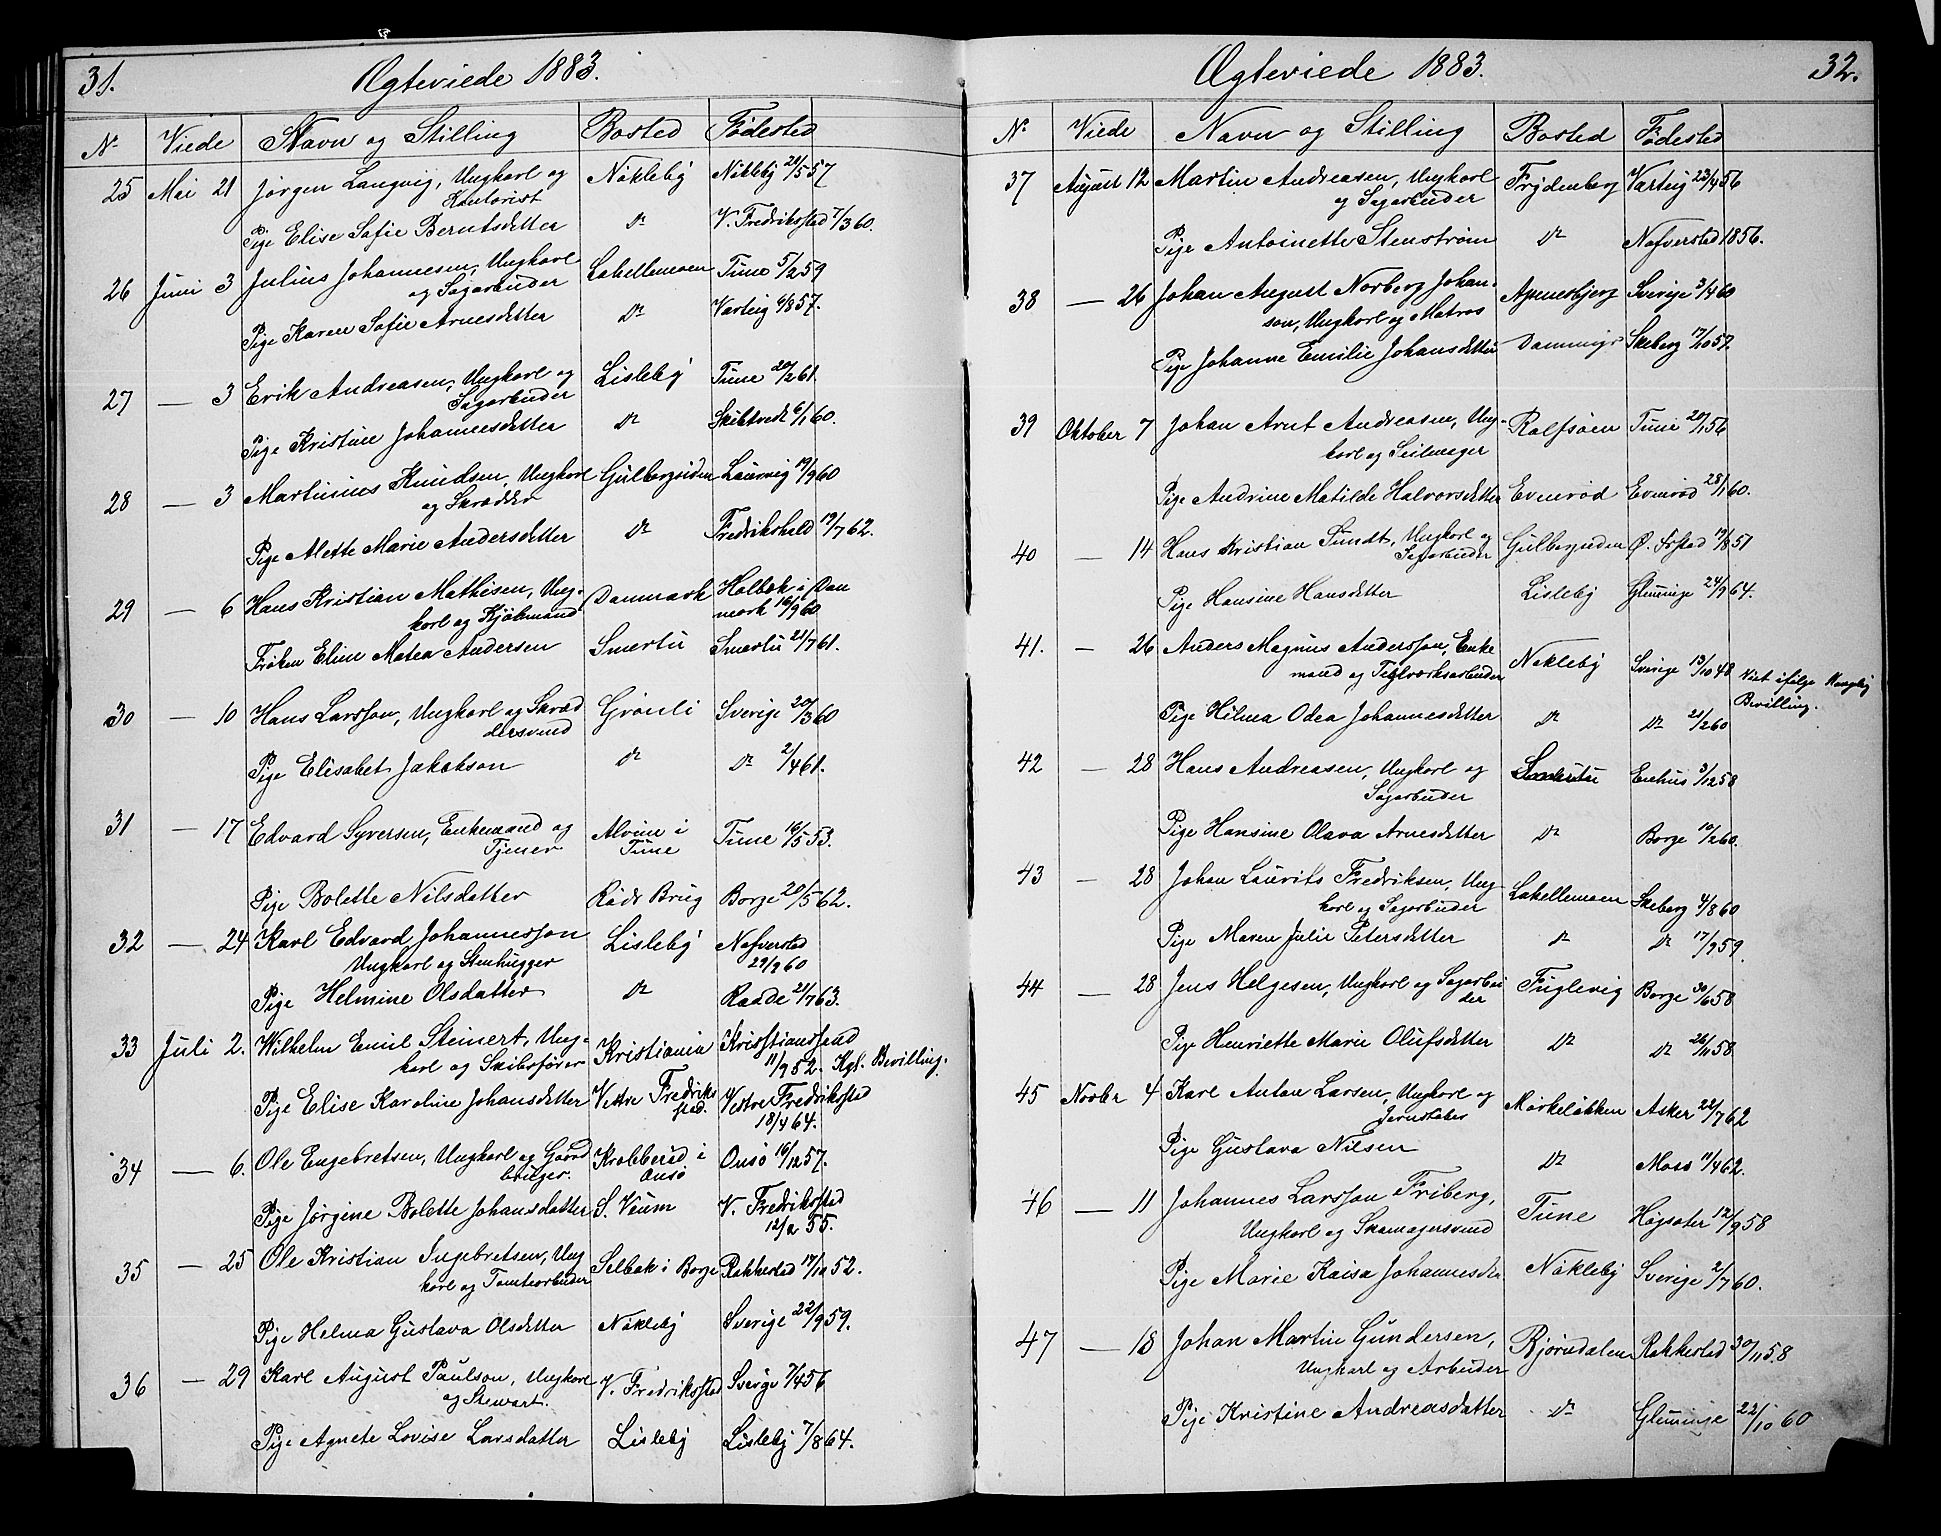 31.
Ægteviede 1883.
No Viede Navn og Stilling Bosted Fødested
25 Mai 21 Jørgen Langvig, Ungkarl og Nökleby Nökleby 21/5 57
Kontorist
Pige Elise Sofie Berntsdatter Do V. Fredriksstad 7/3 60.
26 Juni 3 Julius Johannesen, Ungkarl Lahellemoen Tune 5/2 59
og Sagarbeider
Pige Karen Sofie Arnesdatter Do Varteig 6/8 57.
27 — 3 Erik Andreasen, Ungkarl og Lisleby Tune 20/2 61.
Sagarbeider
Pige Kristine Johannesdatter Do Skibtvedt 6/1 60.
28 — 3 Martinius Knudsen, Ungkarl Gulbergsiden Laurvig 19/9 60
og Skrædder
Pige Alette Marie Andersdatter Do Fredrikshald 19/7 62.
29 — 6 Hans Kristian Mathisen, Ung- Danmark Holbek i Dan
karl og Kjøbmand mark 16/9 60
Frøken Eline Matea Andersen Smertu Smertu 21/7 61.
30 — 10 Hans Larsson, Ungkarl og Skræd Grönli Sverige 20/3 60
dersvend
Pige Elisabet Jakobson Do Do 2/4 61.
31 — 17 Edvard Syversen, Enkemand og Alvim i Tune 16/5 53.
Tjener Tune
Pige Bolette Nilsdatter Röds Brug Borge 20/5 62.
32 — 24 Karl Edvard Johannesson Lisleby Nafverstad
Ungkarl og Stenhugger 29/9 60
Pige Helmine Olsdatter Do Raade 21/7 63.
33 Juli 2. Wilhelm Emil Steinert, Ung- Kristiania Kristianssand
karl og Skibsfører 11/9 52. Kgl. Bevilling.
Pige Elise Karoline Johansdatter Vestre Fredriks Vestre Fredriksstad
stad. 18/4 64.
34 — 6. Ole Engebretsen, Ungkarl og Gaard Krabberød i Onsø 16/12 57.
bruger. Onsø
Pige Jørgine Bolette Johansdatter S. Veum V. Fredriksstad
12/2 55.
35 — 25 Ole Kristian Ingebretsen, Ung Selbak i Borge Rakkestad 17/10 52.
karl og Tomtearbeider
Pige Helma Gustava Olsdatter Nökleby Sverige 22/9 59.
36 — 29 Karl August Paulson, Ungkarl V. Fredriksstad Sverige 7/4 56
og Stewart.
Pige Agnete Lovise Larsdatter Lisleby Lisleby 7/8 64.
Ægteviede 1883.
32.
No Viede Navn og Stilling Bosted Fødested
37 August 12 Martin Andreasen, Ungkarl Frydenberg Varteig 23/4 56
og Sagarbeider
Pige Antoinette Stenstrøm Do Nafverstad 1856.
38 — 26 Johan August Norberg Johan- Apenesbjerg Sverige 3/4 60
son, Ungkarl og Matros
Pige Johanne Emilie Johansdatter Skeberg 17/10 57.
39 Oktober 7 Johan Arnt Andreasen, Ung- Rolfsöen Tune 20/1 56
karl og Seilmager
Pige Andrine Matilde Halvorsdatter Evenrød Evenrød 28/1 60.
40 — 14 Hans Kristian Sundt, Ungkarl og Gulbergsiden Ø. Fr.stad 19/8 51
Sagarbeider
Pige Hansine Hansdatter Lisleby Glemminge 24/9 64.
41. — 26 Anders Magnus Andersson, Enke Nökleby Sverige 13/10 48 Viet ifølge Kongelig
mand og Teglverksarbeider Bevilling.
Pige Hilma Odea Johannesdatter Do Do 21/2 60
42 — 28 Hans Andreasen, Ungkarl og Smertu Enhus 3/12 58
Sagarbeider
Pige Hansine Olava Arnesdatter Do Borge 10/2 60.
43 — 28 Johan Laurits Fredriksen, Ung Lahellemoen Skeberg 4/8 60
karl og Sagarbeider
Pige Maren Julie Petersdatter Do Do 17/9 59.
44 — 28 Jens Helgesen, Ungkarl og Sagarbei Fuglevig Borge 30/6 58
der
Pige Henriette Marie Olufsdatter Do Do 26/11 58
45 Novbr 4 Karl Anton Larsen, Ungkarl og Mørkeløkken Asker 22/7 62
Jernstøber
Pige Gustava Nilsen Do Moss 11/4 62.
46 — 11 Johannes Larsson Friberg, Tune Högsäter 12/9 58
Ungkarl og Skomagersvend
Pige Marie Kaisa Johannesdr Nökleby Sverige 2/7 60.
47 — 18 Johan Martin Gundersen, Bjørndalen Rakkestad 30/11 58
Ungkarl og Arbeider
Pige Kristine Andreasdatter Do Glemminge 22/10 60